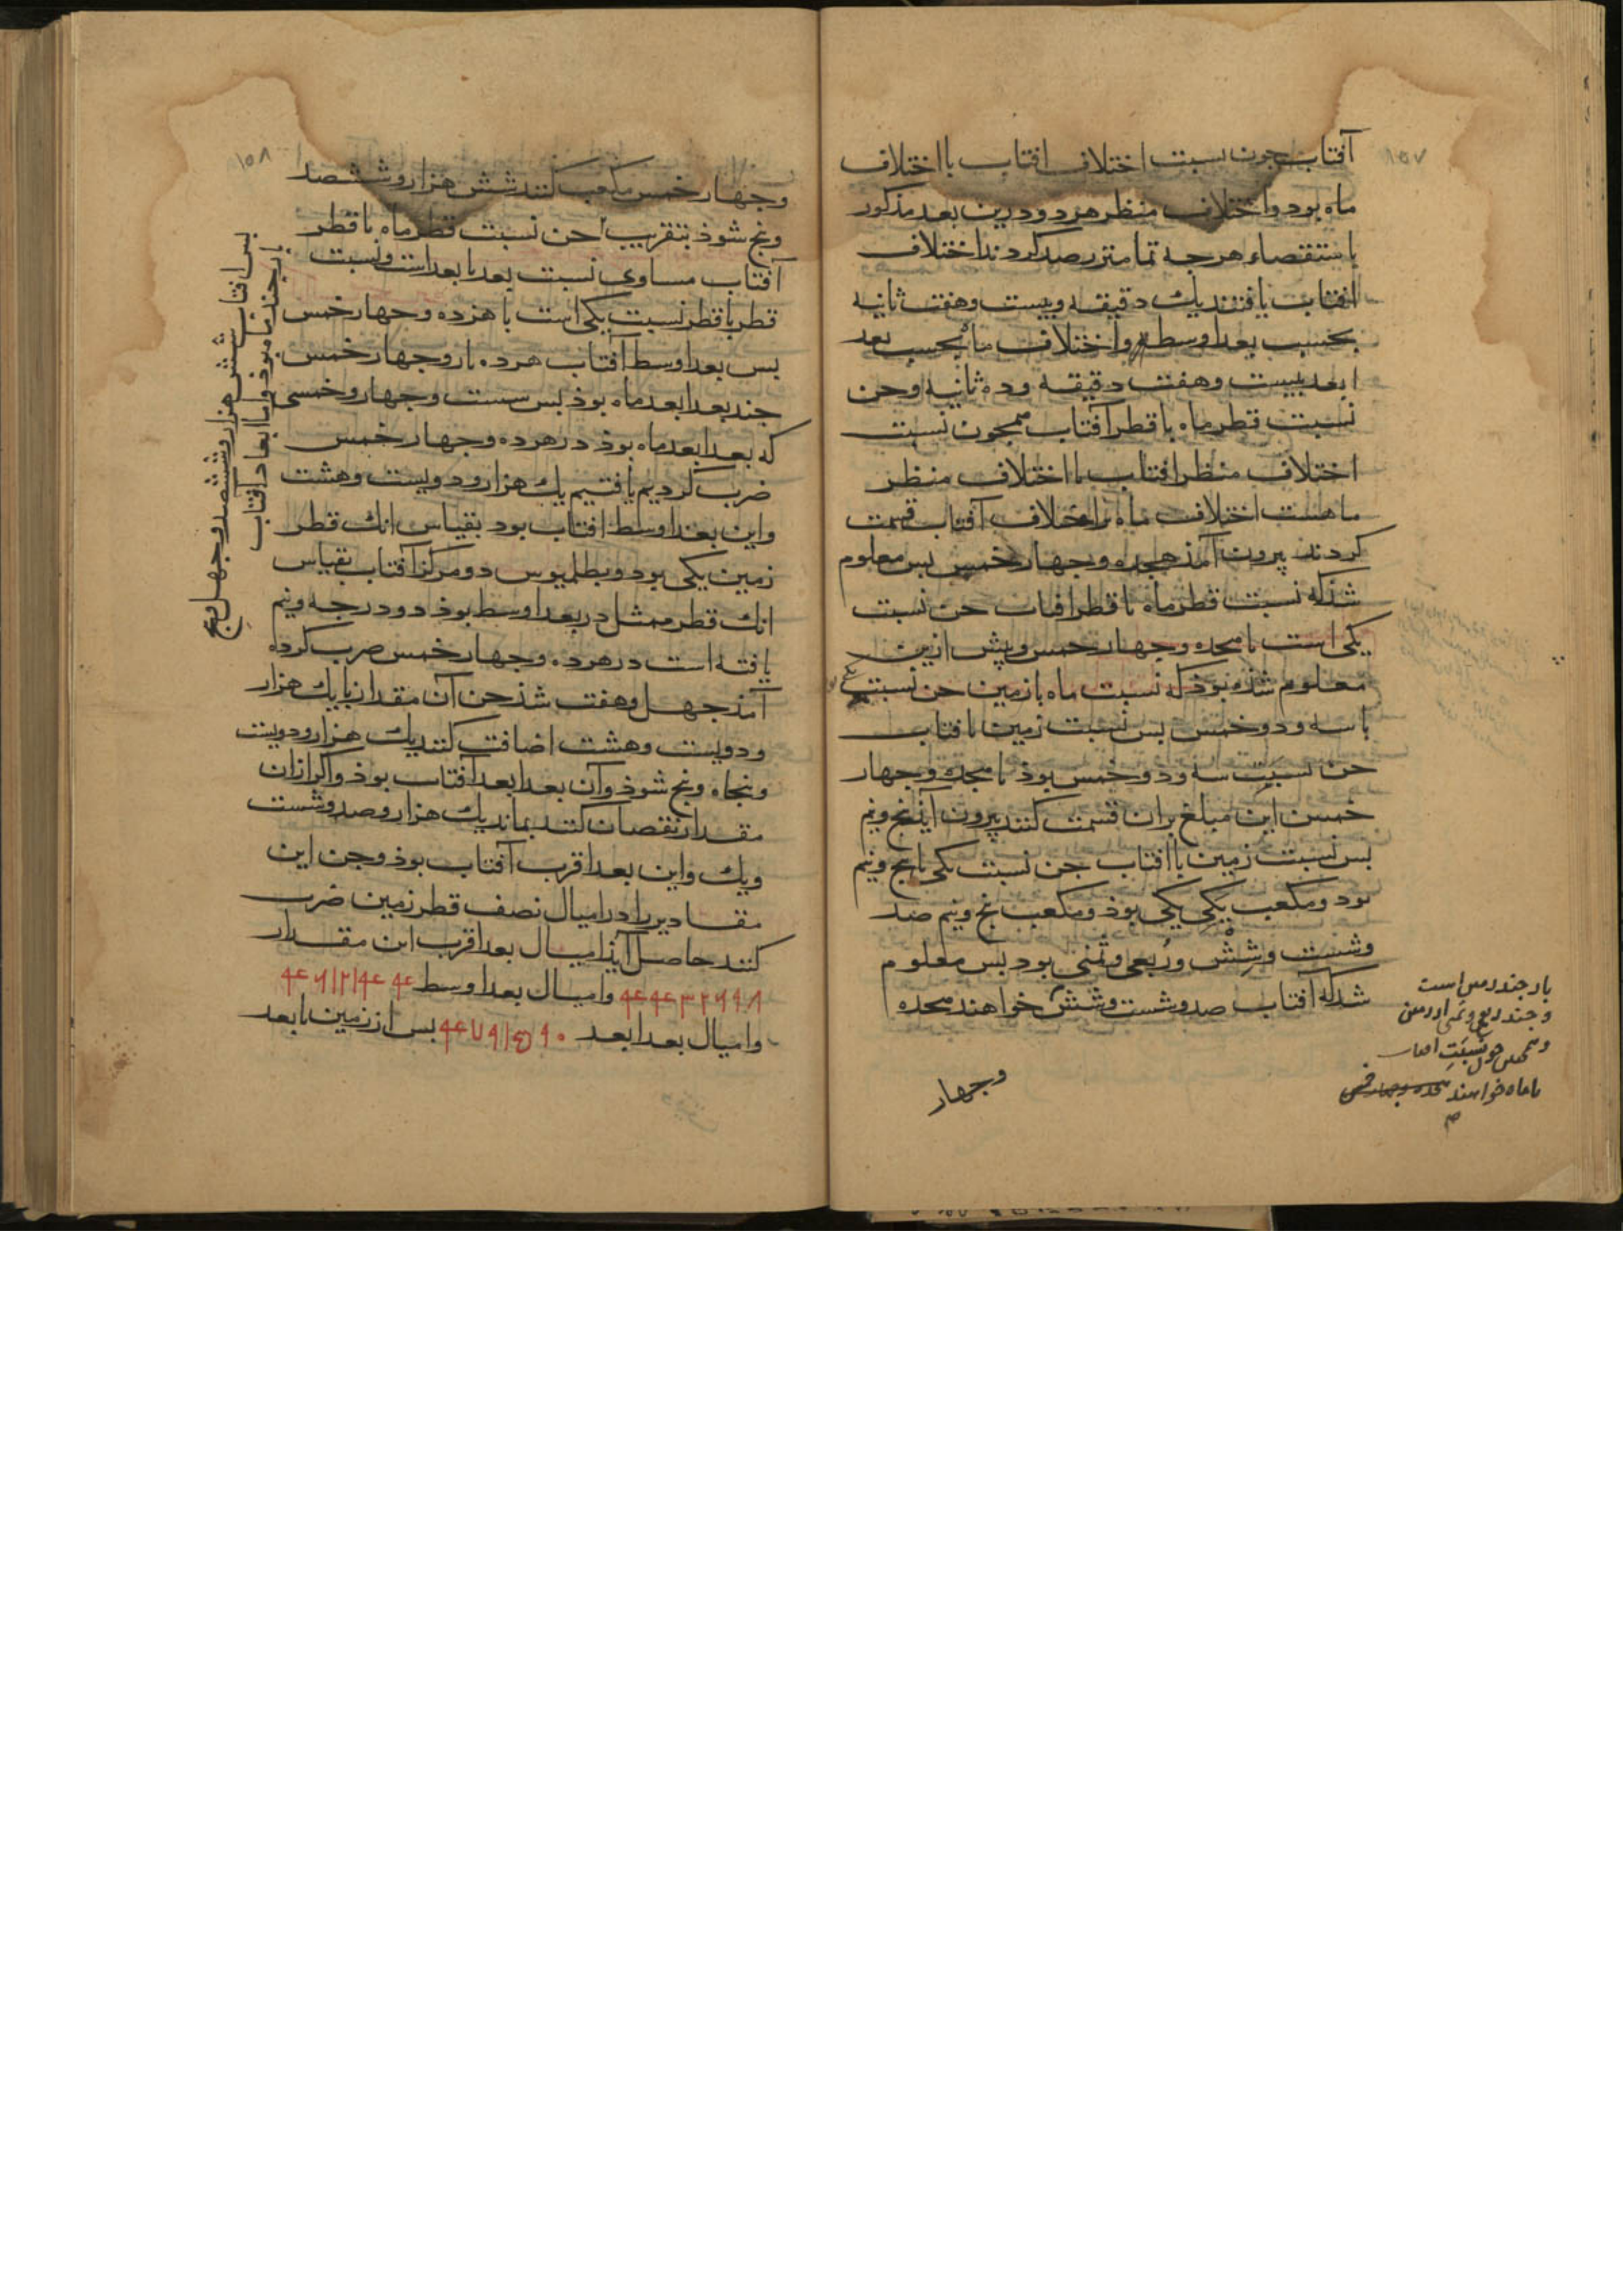 ١٥٧
آفتاب جون نسبت اختلاف افتاب با اختلاف
ماه بود واختلاف منظر هر دو درين بعد مذكور
باستقصاء هرجه تمامتر رصد كردند اختلاف
افتاب يافتند يك دقيقه وبيست وهفت ثانيه
بحسب بعد اوسط واختلاف ماه بحسب بعد
ابعد بيست وهفت دقيقه وده ثانيه وجن
نسبت قطر ماه با قطر آفتاب همجون نسبت
اختلاف منظر افتاب با اختلاف منظر
ماهست اختلاف ماه بر اختلاف آفتاب قسمت
كردند بيرون آمذ هجده وجهار خمس بس معلوم
شد كه نسبت قطر ماه با قطر افتاب جن نسبت
يكى است با هجده وجهار خمس وپيش ازين
معلوم شذه بوذ كه نسبت ماه با زمين جن نسبت
با سه ودو خمس بس نسبت زمين با افتاب
جن نسبت سه ودو خمس بوذ با هجده وجهار
خمس اين مبلغ بران قسمت كنند بيرون آيذ بنج ونيم
بس نسبت زمين با افتاب جن نسبت يكى با بنج ونيم
بود ومكعب يكى يكى بوذ ومكعب بنج ونيم صد
وشست وشش وربعى وثمنى بود بس معلوم
شد كه آفتاب صد وشست وشش خواهند هجده
بار جند زمين است
وجند ربع وثمن از زمين
با ماه خواهند هجده وجهار خمس
وجهار
١٥٨
وجهار خمس مكعب كنند شش هزار وششصد
وبنج شوذ بتقريب جن نسبت قطر ماه با قطر
آفتاب مساوى نسبت بعد با بعد است ونسبت
قطر با قطر نسبت يكى است با هزده وجهار خمس
بس بعد اوسط آفتاب هرده بار وجهار خمس
جند بعد ابعد ماه بوذ بس شست وجهار وخمسى
كه بعد ابعد ماه بوذ در هرده وجهار خمس
ضرب كرديم يافتيم يك هزار ودويست وهشت
واين بعد اوسط افتاب بود بقياس انك قطر
زمين يكى بود وبطلميوس دو مركز آفتاب بقياس
انك قطر ممثل در بعد اوسط بوذ دو درجه ونيم
يافته است در هرده وجهار خمس ضرب كرده
آمذ جهل وهفت شذ جن آن مقدار با يك هزار
ودويست وهشت اضافت كنند يك هزار ودويست
وبنجاه وبنج شوذ وآن بعد ابعد آفتاب بوذ واكر ازان
مقدار نقصان كنند بماند يك هزار وصد وشست
ويك واين بعد اقرب آفتاب بوذ وجن اين
مقادير را در اميال نصف قطر زمين ضرب
كنند حاصل آيذ اميال بعد اقرب اين مقدار
واميال بعد اوسط
واميال بعد ابعد بس از زمين تا بعد
بس افتاب شش هزار وششصد وجهل وبنج
بار جند ماه بوذ واما ابعاد افتاب